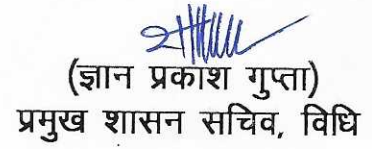 (ज्ञान प्रकाश गुप्ता)
प्रमुख शासन सचिव, विधि